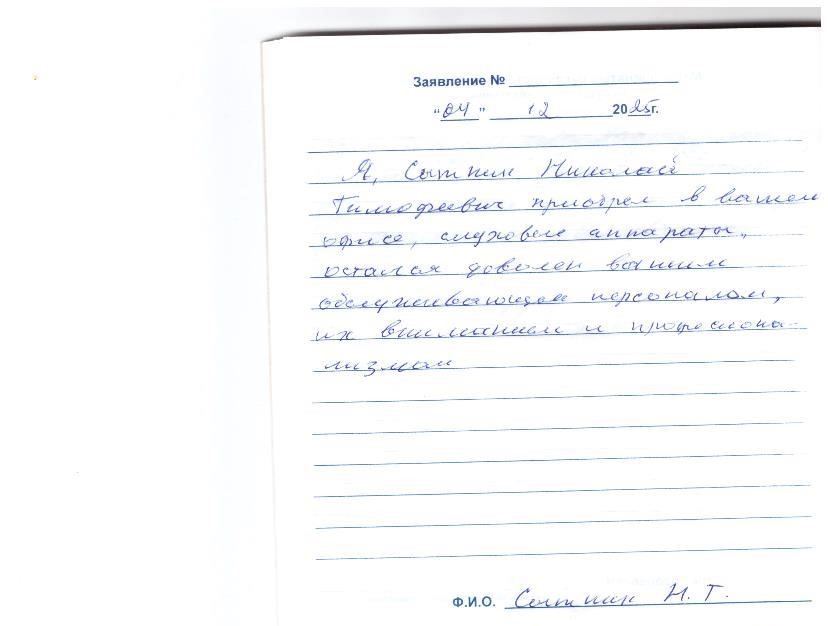 Заявление №
"04" 12 2025г.
Я, Сытник Николай
Тимофеевич приобрел в вашем
офисе, слуховые аппараты,
остался доволен вашим
обслуживающем персоналом,
их вниманием и професиона-
лизмом
Ф.И.О. Сытник Н. Т.